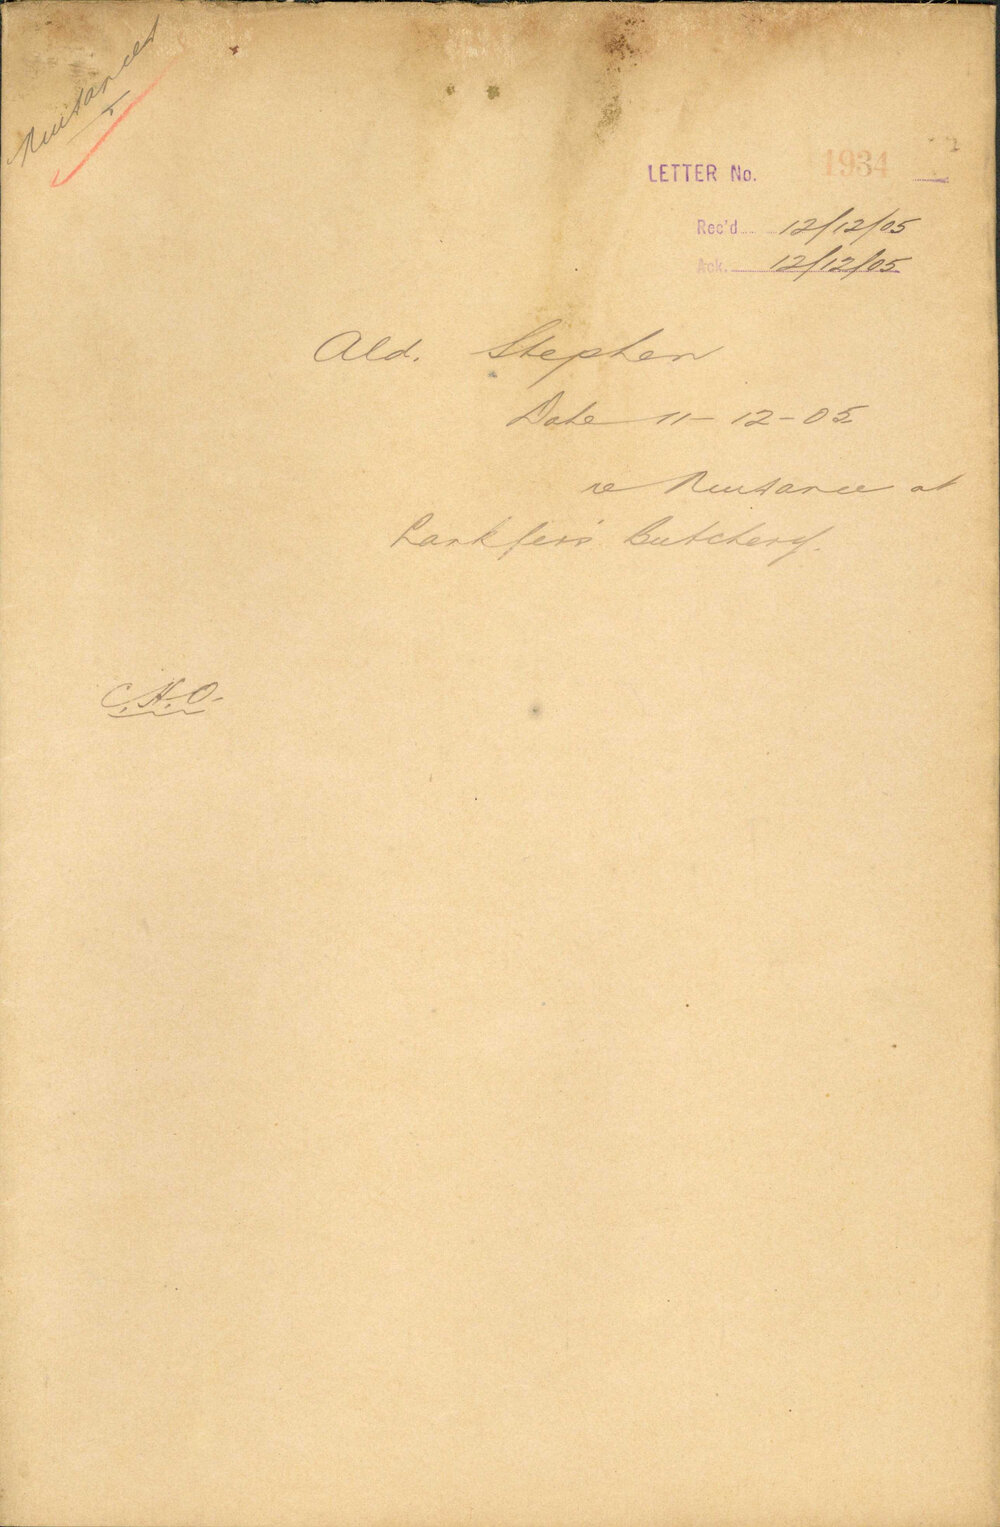 Nuisances
LETTER No. 1934
Rec'd 12/12/05
Ack. 12/12/05
Ald. Stephen
Date 11-12-05
re Nuisance at
Butchery.
C.H.O.